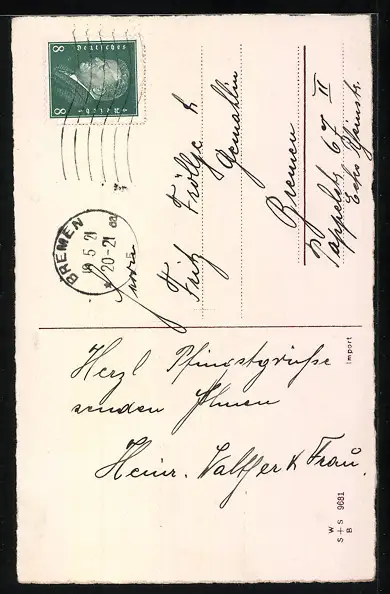 Deutsches
Reich
8 8
BREMEN
19 5 21
20-21
Fritz Fröllje &
Gemahlin
Bremen
Pappelstr. 67 II
Ecke Rheinstr.
Herzl Pfingstgrüße
senden Ihnen
Heinr. & Frau.
Import
W
S+S 9681
B